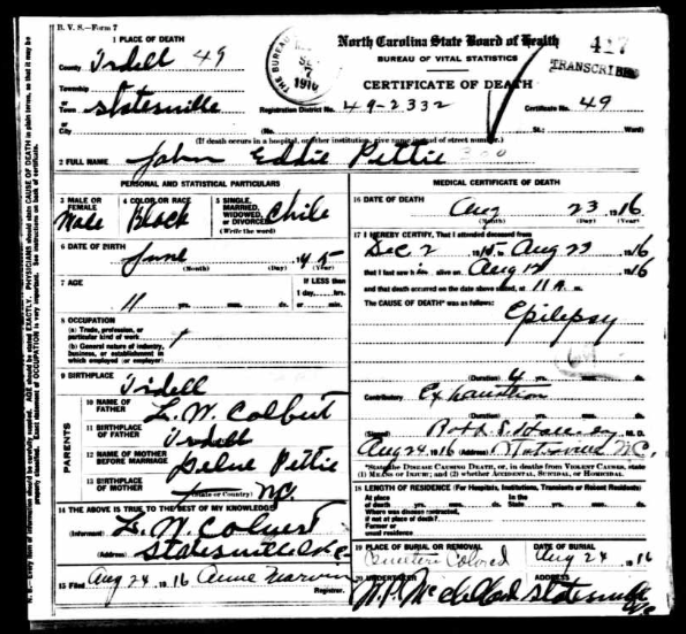 B. V. S.—Form 7
1 PLACE OF DEATH
County Irdell 49
Township
or
Town Statesville
or
City
THE BUREAU
SE
7
1916
North Carolina State Board of Health
BUREAU OF VITAL STATISTICS
417
TRANSCRIBED
CERTIFICATE OF DEATH
Registration District No. 49-2332 Certificate No. 49
(No. St.; Ward)
(If death occurs in a hospital, or other institution, give name instead of street number.)
2 FULL NAME John Eddie Pettie
PERSONAL AND STATISTICAL PARTICULARS
3 MALE OR FEMALE Male
4 COLOR OR RACE Black
5 SINGLE, MARRIED, WIDOWED, OR DIVORCED (Write the word) Chile
6 DATE OF BIRTH
June
(Month) (Day) (Year)
7 AGE
11 yrs. mos. ds.
If LESS than
1 day, hrs.
or min.
8 OCCUPATION
(a) Trade, profession, or
particular kind of work
(b) General nature of industry,
business, or establishment in
which employed (or employer)
9 BIRTHPLACE Irdell
PARENTS
10 NAME OF FATHER L. W. Colbert
11 BIRTHPLACE OF FATHER Irdell
12 NAME OF MOTHER BEFORE MARRIAGE Pettie
13 BIRTHPLACE OF MOTHER (State or Country) N.C.
14 THE ABOVE IS TRUE TO THE BEST OF MY KNOWLEDGE
(Informant) L. W. Colvert
(Address) Statesville N.C.
15 Filed Aug 24, 1916 Anne Marvin
Registrar.
MEDICAL CERTIFICATE OF DEATH
16 DATE OF DEATH
Aug 23 1916
(Month) (Day) (Year)
17 I HEREBY CERTIFY, That I attended deceased from
Dec 2 1915 to Aug 23 1916
that I last saw him alive on Aug 12 1916
and that death occurred on the date above stated, at 11 A. m.
The CAUSE OF DEATH* was as follows:
Epilepsy
(Duration) 4 yrs. mos. ds.
Contributory Exhaustion
(Duration) yrs. mos. ds.
(Signed) M. D.
Aug 24 1916 (Address) Statesville N.C.
*State the DISEASE CAUSING DEATH, or, in deaths from VIOLENT CAUSES, state
(1) MEANS OF INJURY; and (2) whether ACCIDENTAL, SUICIDAL, or HOMICIDAL.
18 LENGTH OF RESIDENCE (For Hospitals, Institutions, Transients or Recent Residents)
At place of death yrs. mos. ds. In the State yrs. mos. ds.
Where was disease contracted,
if not at place of death?
Former or
usual residence
19 PLACE OF BURIAL OR REMOVAL
Colored
DATE OF BURIAL
Aug 24 1916
20 UNDERTAKER
ADDRESS
Statesville N.C.